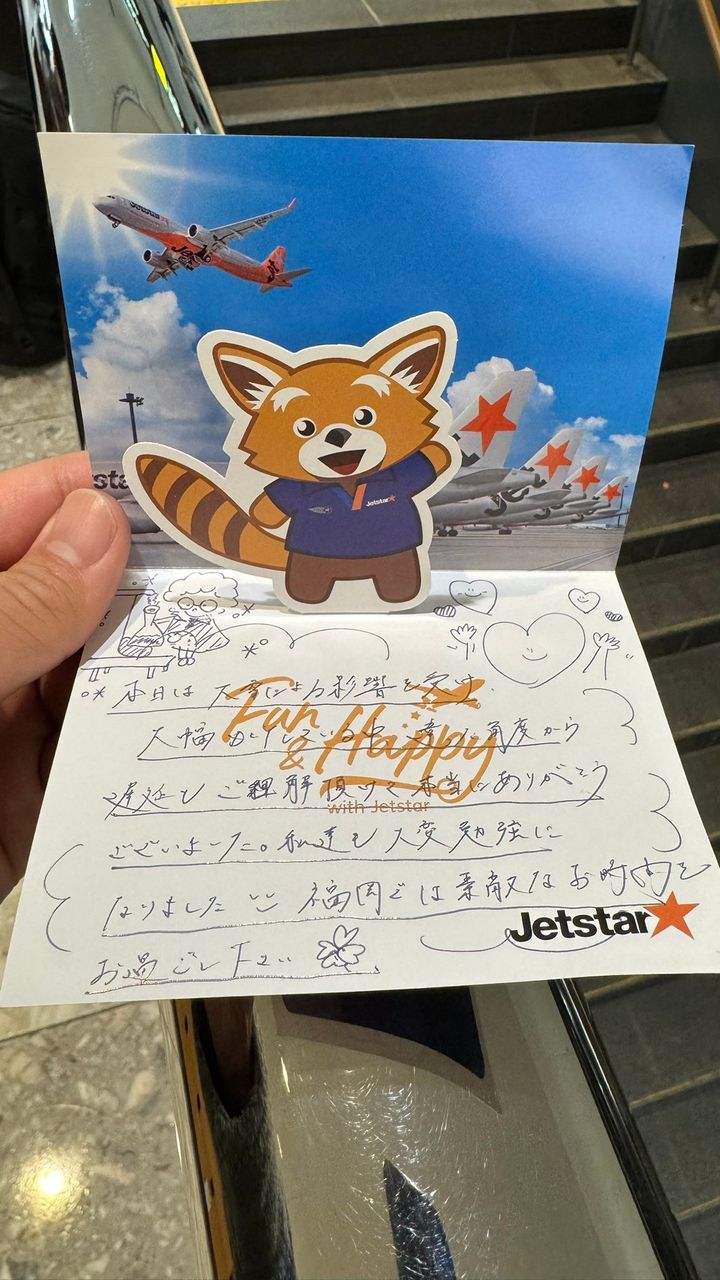 Jetstar
Jetstar
本日は天候による影響を受け、
大幅な
違う角度から
遅延もご理解頂けて本当にありがとう
ございました。私達も大変勉強に
なりました 福岡では素敵なお時間を
お過ごし下さい
Fun
& Happy
with Jetstar
Jetstar